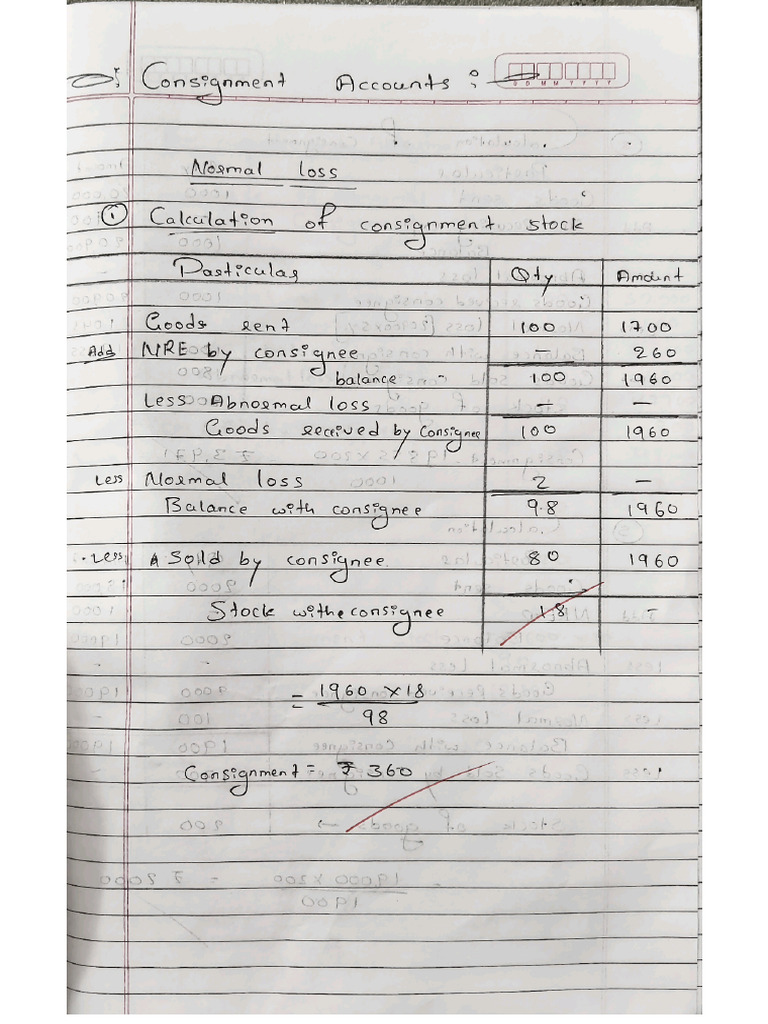 Consignment Accounts :
D D M M Y Y Y Y
Normal loss
① Calculation of consignment stock
Particulas Qty Amount
Goods sent 100 1700
Add NRE by consignee – 260
balance - 100 1960
Less Abnormal loss – –
Goods received by Consignee 100 1960
Less Normal loss 2 –
Balance with consignee 9.8 1960
Less Sold by consignee. 80 1960
Stock withe consignee 18
= 1960 × 18
98
Consignment = ₹ 360